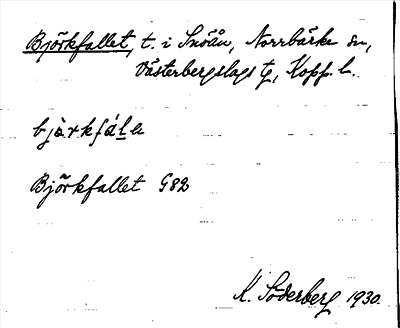 Björkfallet, t. i Snöån, Norrbärke sn,
Västerbergslags tg, Kopp. l.
bjàrkfáḷa
Björkfallet G82
K. Söderberg 1930.